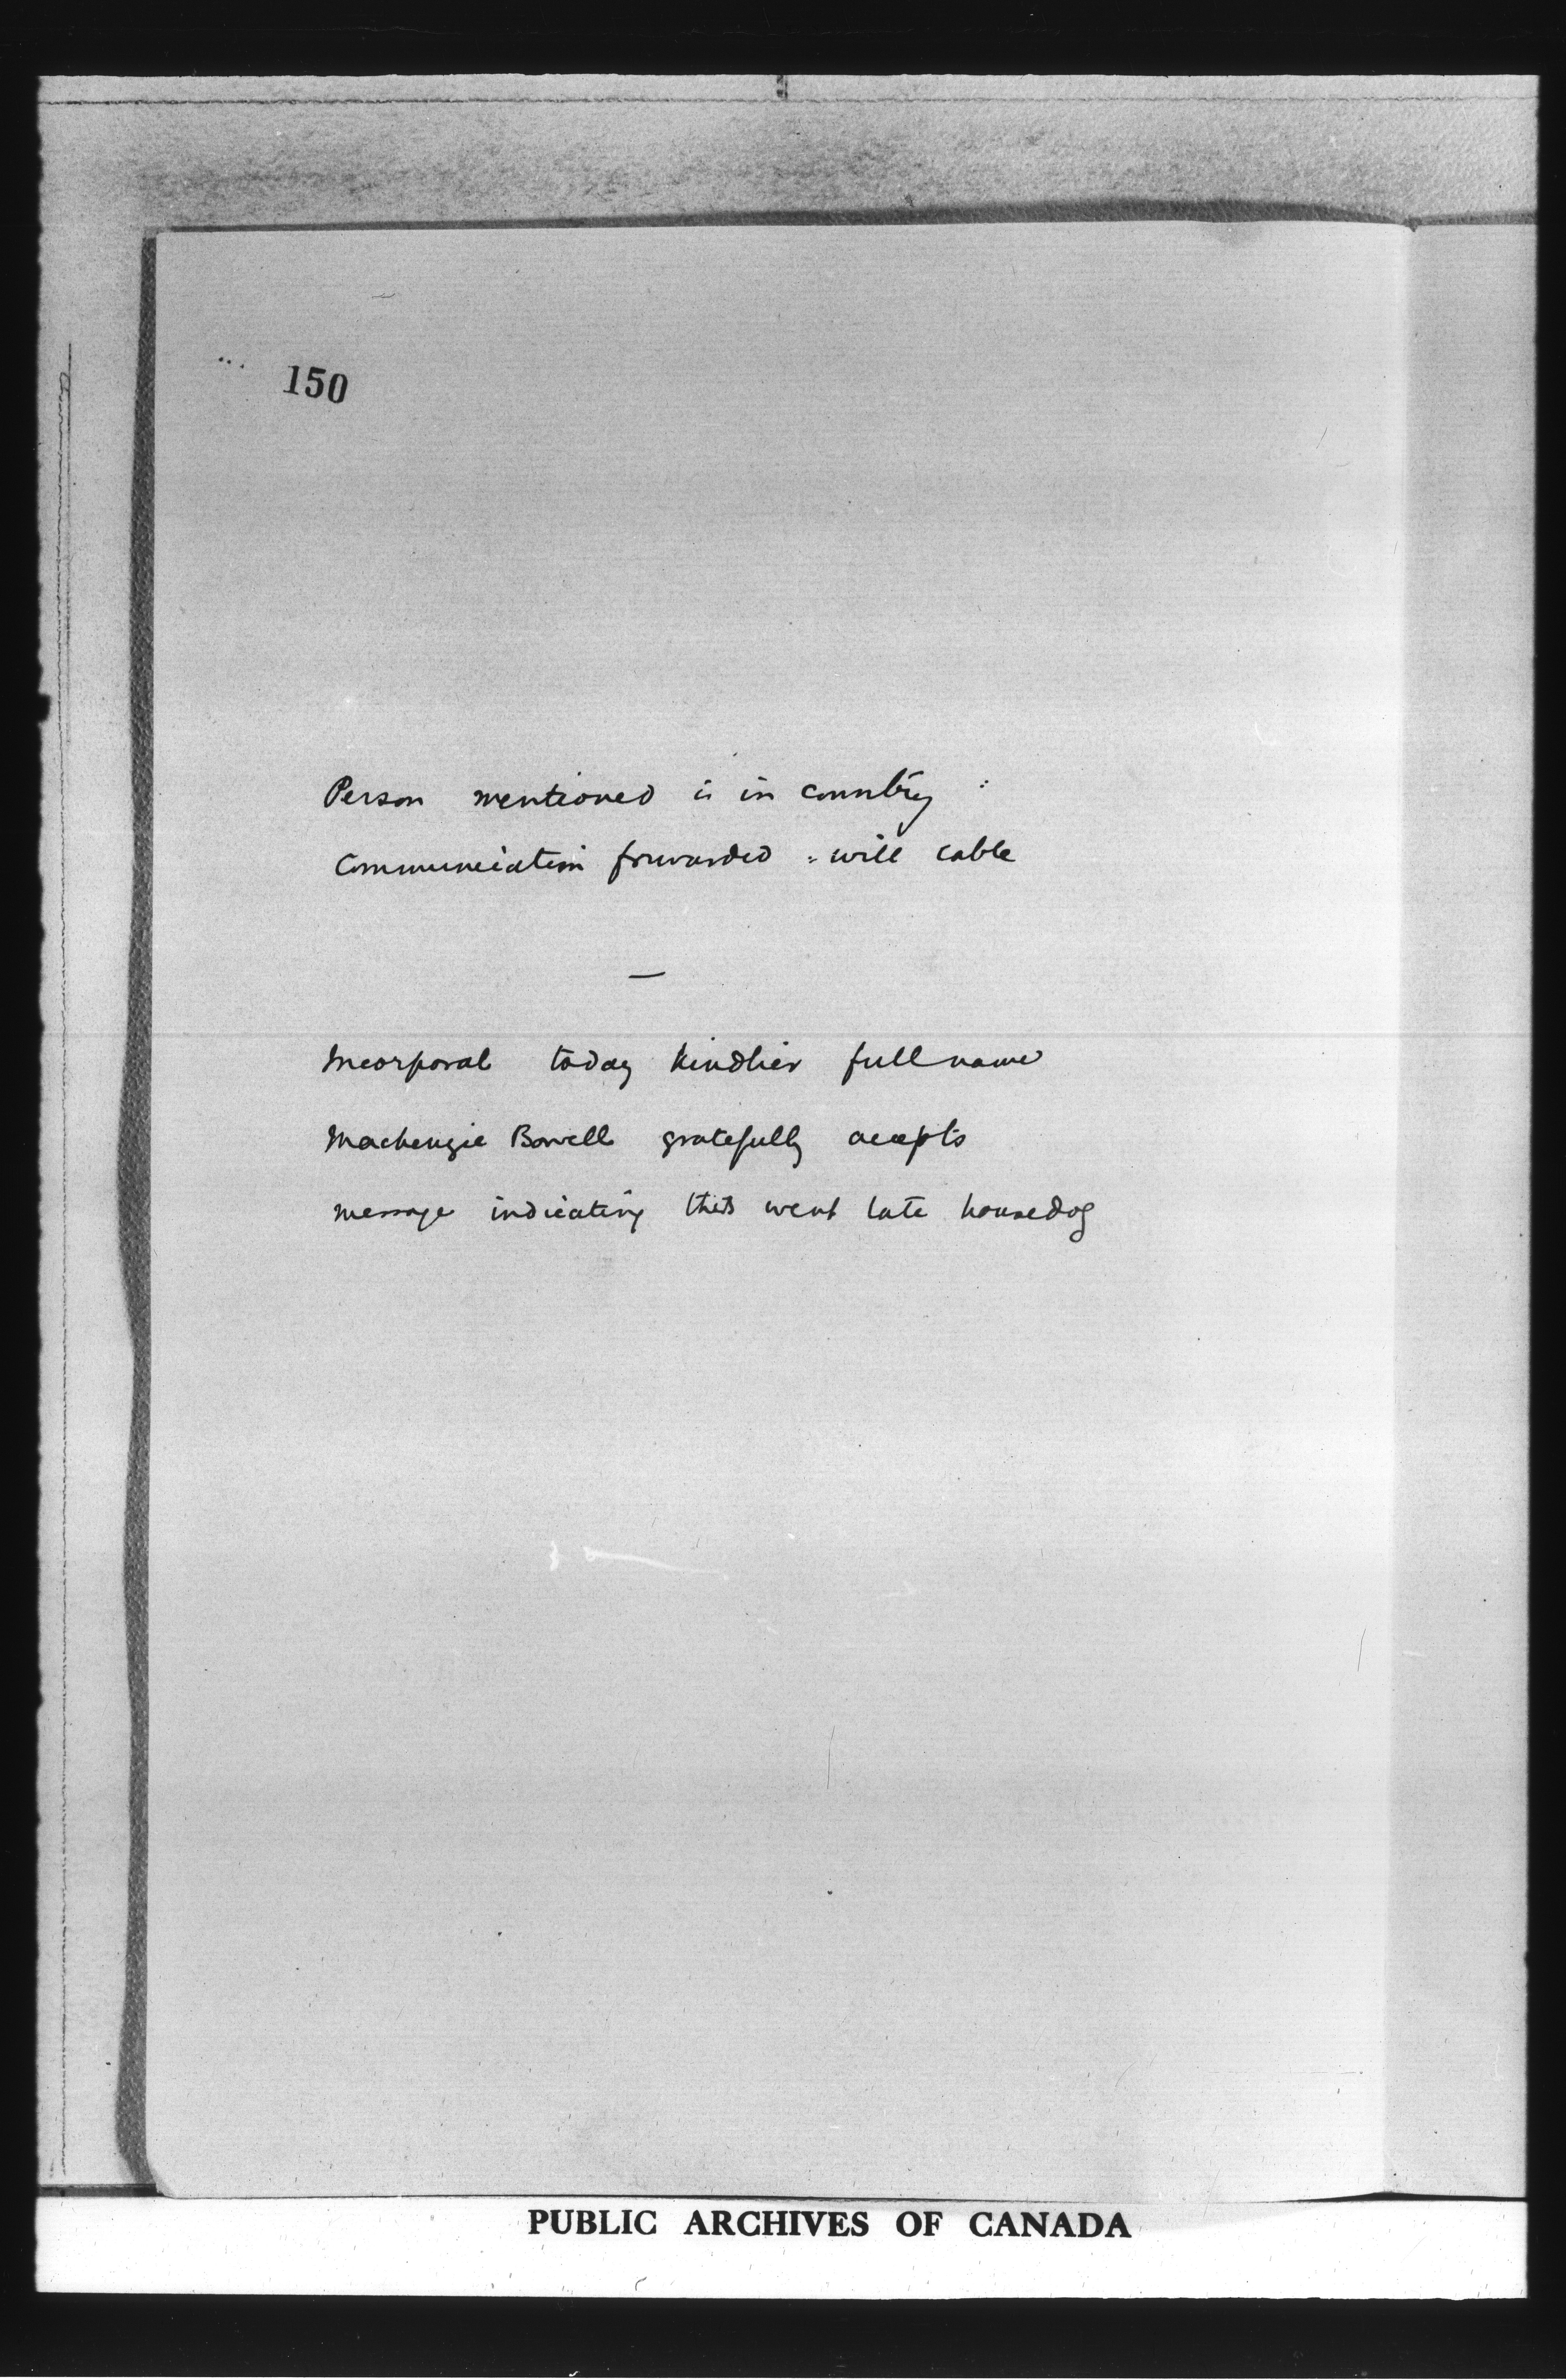 150
Person mentioned is in country :
Communication forwarded : will cable
—
Incorporal today kindlier full name
Mackenzie Bowell gratefully accepts
message indicating this went late housedog
PUBLIC ARCHIVES OF CANADA